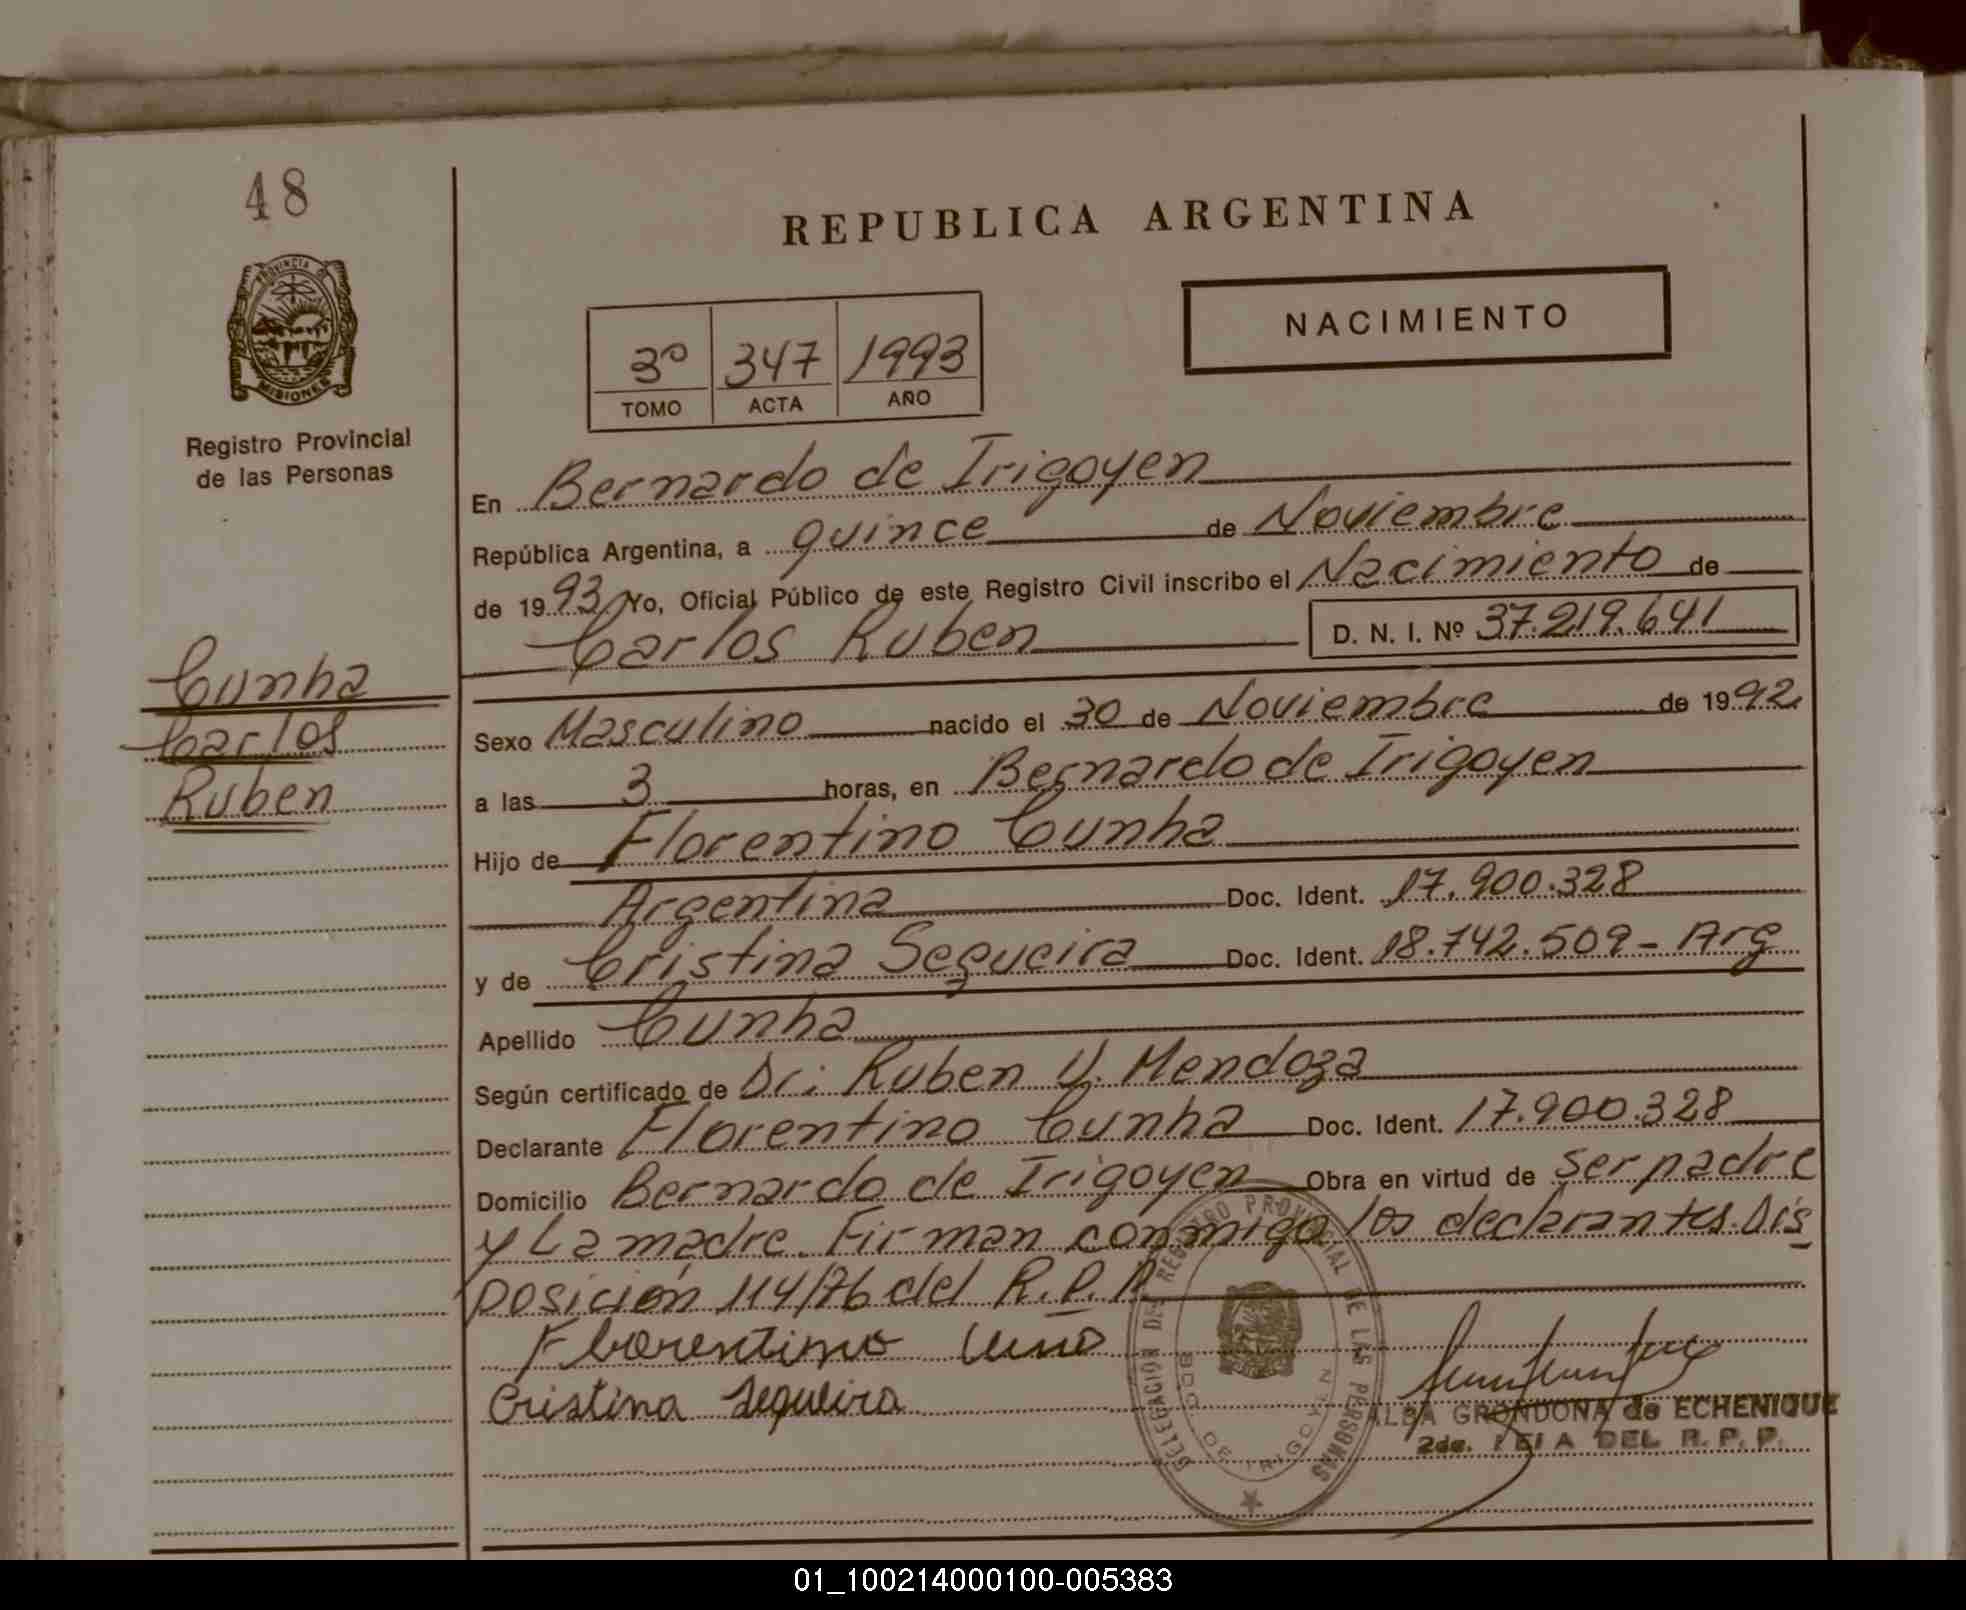 48
REPUBLICA ARGENTINA
PROVINCIA DE
MISIONES
Registro Provincial
de las Personas
NACIMIENTO
3º 347 1993
TOMO ACTA AÑO
En Bernardo de Irigoyen
República Argentina, a quince de Noviembre
de 1993 Yo, Oficial Público de este Registro Civil inscribo el Nacimiento de
Carlos Ruben D. N. I. Nº 37.219.641
Cunha
Carlos
Ruben
Sexo Masculino nacido el 30 de Noviembre de 1992
a las 3 horas, en Bernardo de Irigoyen
Hijo de Florentino Cunha
Argentina Doc. Ident. 17.900.328
y de Cristina Sequeira Doc. Ident. 18.742.509 - Arg
Apellido Cunha
Según certificado de Dr: Ruben V. Mendoza
Declarante Florentino Cunha Doc. Ident. 17.900.328
Domicilio Bernardo de Irigoyen Obra en virtud de ser padre
y La madre. Firman conmigo los declarantes. Dis
posición 114/76 del R.P.P.
Florentino
Cristina Sequeira
DELEGACION DEL REGISTRO PROVINCIAL DE LAS PERSONAS
BDO. DE IRIGOYEN
ALBA GRONDONA de ECHENIQUE
2da. DEL R. P. P.
01_100214000100-005383